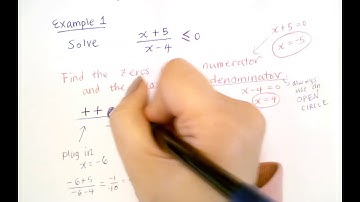 Example 1
Solve x+5 / x-4 ≤ 0
x+5=0
x=-5
Find the zeros numerator
and the denominator
x-4=0
x=4
always
use an
OPEN
CIRCLE
++
plug in
x=-6
-6+5 / -6-4 = -1 / -10 =